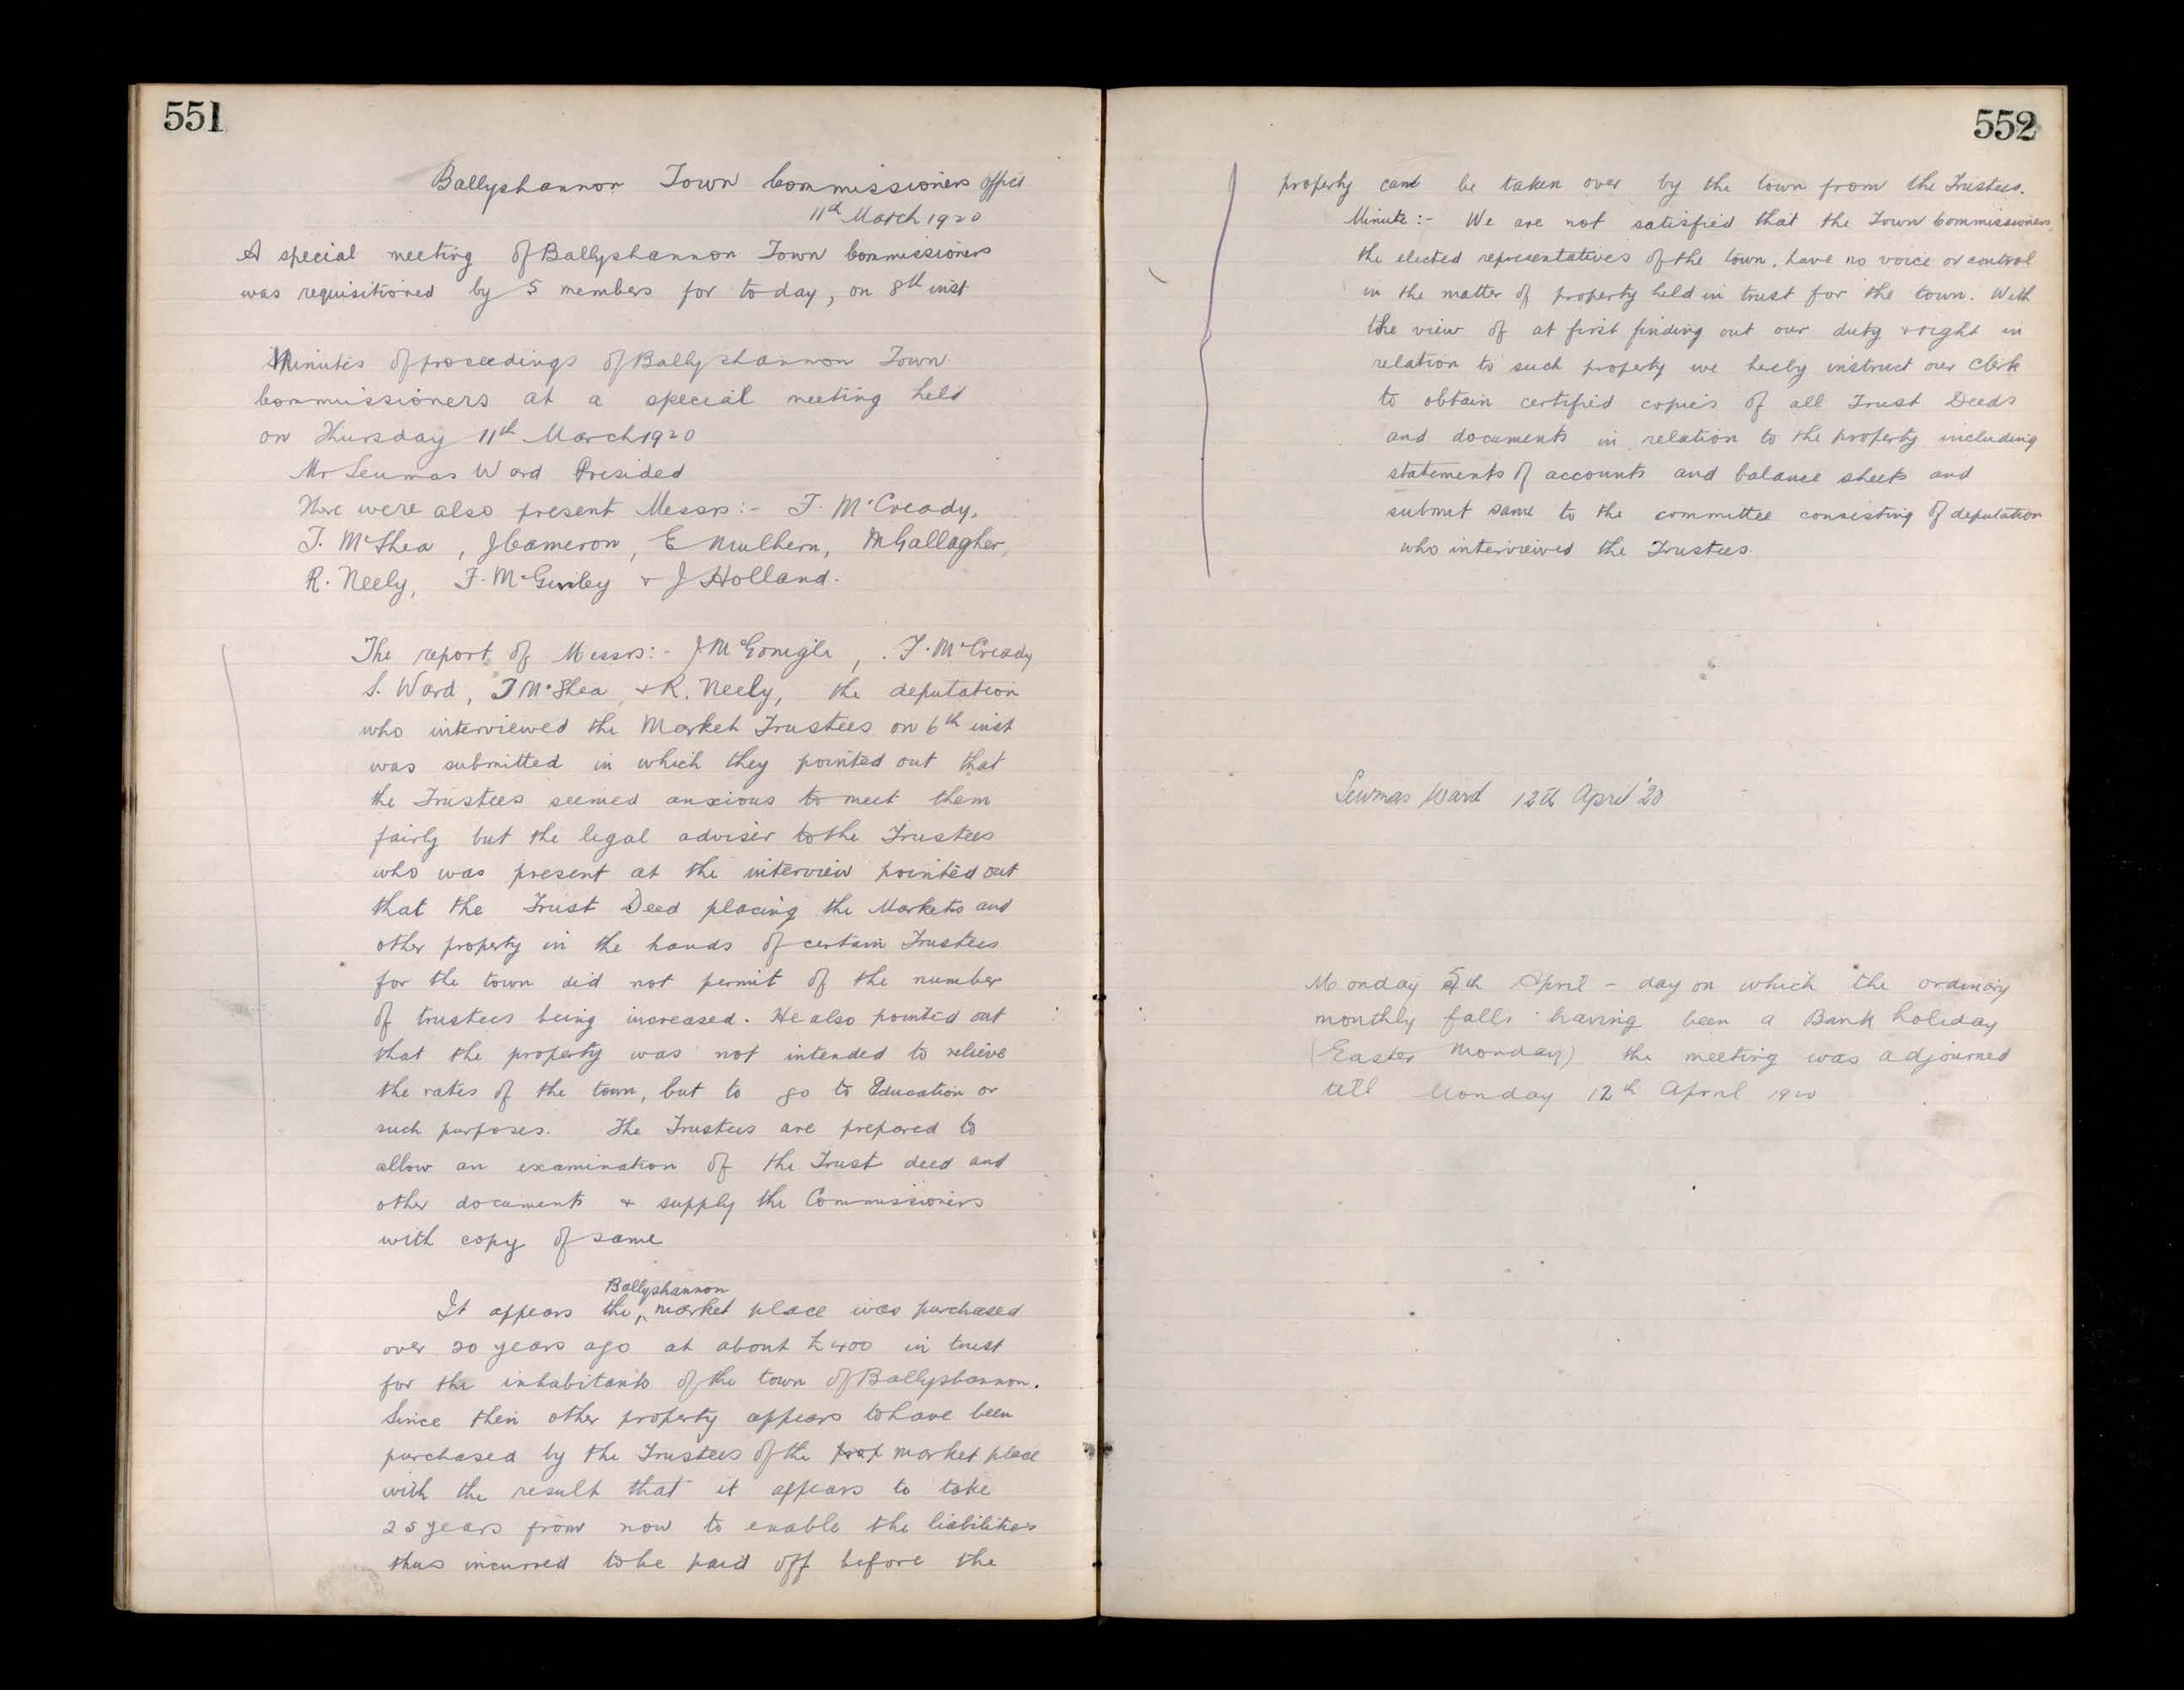 551
Ballyshannon Town Commissioners Office
11th March 1920
A special meeting of Ballyshannon Town Commissioners
was requisitioned by 5 members for to day, on 8th inst
Minutes of proceedings of Ballyshannon Town
Commissioners at a special meeting held
on Thursday 11th March 1920
Mr Seumas Ward Presided
There were also present Messrs:- F. McCready,
T. McShea, J Cameron, E Mulhern, M Gallagher,
R. Neely, F. McGinley + J Holland.
The report of Messrs:- J McGonigle, F. McCready
S. Ward, T McShea, + R. Neely, the deputation
who interviewed the Market Trustees on 6th inst
was submitted in which they pointed out that
the Trustees seemed anxious to meet them
fairly but the legal adviser to the Trustees
who was present at the interview pointed out
that the Trust Deed placing the Markets and
other property in the hands of certain Trustees
for the town did not permit of the number
of trustees being increased. He also pointed out
that the property was not intended to relieve
the rates of the town, but to go to Education or
such purposes. The Trustees are prepared to
allow an examination of the Trust deed and
other documents + supply the Commissioners
with copy of same
It appears the Ballyshannon market place was purchased
over 20 years ago at about £400 in trust
for the inhabitants of the town of Ballyshannon.
Since then other property appears to have been
purchased by the Trustees of the prop market place
with the result that it appears to take
25 years from now to enable the liabilities
thus incurred to be paid off before the
552
property can be taken over by the town from the Trustees.
Minute:- We are not satisfied that the Town Commissioners,
the elected representatives of the town, have no voice or control
in the matter of property held in trust for the town. With
the view of at first finding out our duty + right in
relation to such property we hereby instruct our Clerk
to obtain certified copies of all Trust Deeds
and documents in relation to the property including
statements of accounts and balance sheets and
submit same to the committee consisting of deputation
who interviewed the Trustees.
Seumas Ward 12th April '20
Monday 5th April - day on which the ordinary
monthly falls having been a Bank holiday
(Easter Monday) the meeting was adjourned
till Monday 12th April 1920